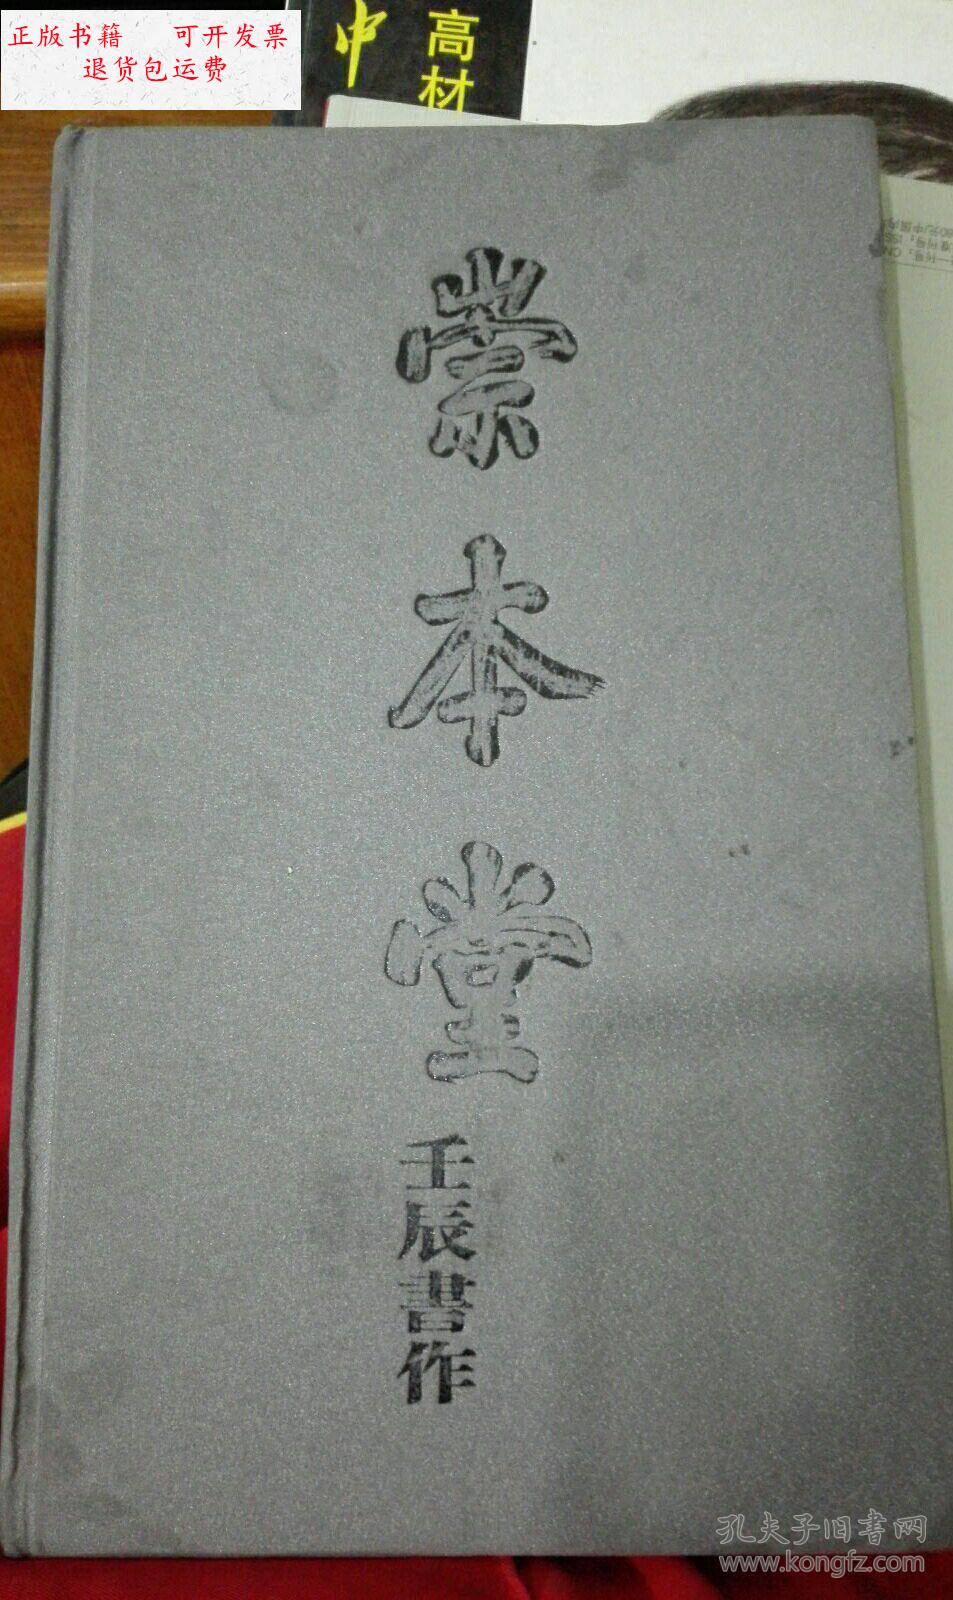 正版书籍 可开发票
退货包运费
中
高材
崇本堂
壬辰書作
孔夫子旧書网
www.kongfz.com